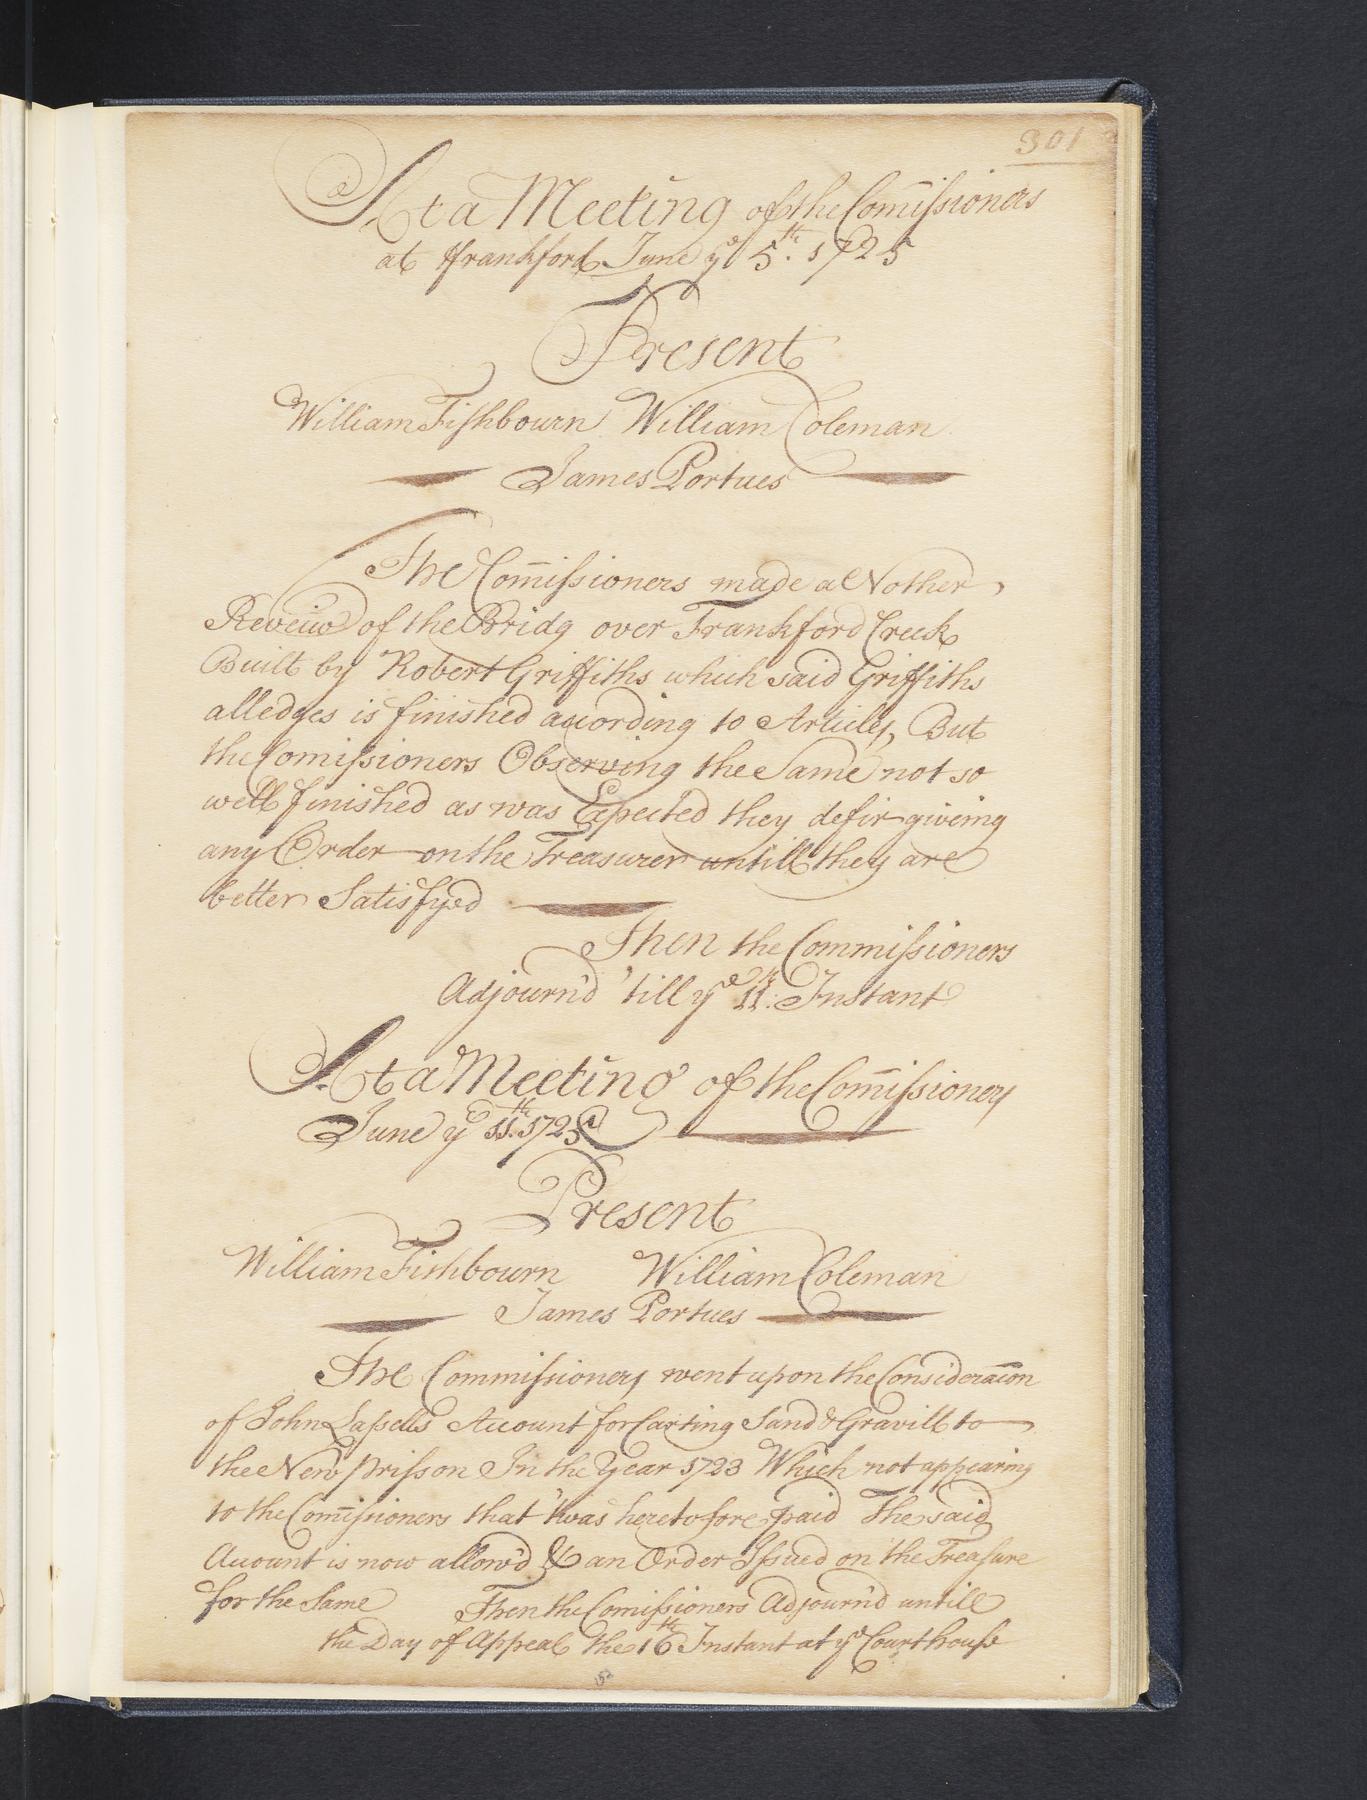 301
At a Meeting of the Com̃issioners
at ffrankford June yᵉ 5th. 1725
Present
William Fishbourn William Coleman
James Portues
The Com̃issioners made a Nother
Reveiw of the Bridg over Frankford Creek
Built by Robert Griffiths which said Griffiths
alledges is finished according to Articles, But
the Comissioners Observing the Same not so
well finished as was Expected they defir giveing
any Order on the Treasurer untill they are
better Satisfyed
Then the Commissioners
Adjourn'd 'till yᵉ 11th: Instant
At a Meeting of the Com̃issioners
June yᵉ 11th. 1725
Present
William Fishbourn William Coleman
James Portues
The Commissioners went upon the Considerac̃on
of John Lassells Account for Carting Sand & Gravill to
the New Prisson In the Year 1723 Which not appearing
to the Com̃issioners that 'twas heretofore paid The said
Account is now allow'd & an Order Issued on the Treasure
for the Same Then the Comissioners Adjourn'd untill
the Day of Appeal the 16th Instant at yᵉ Courthouse